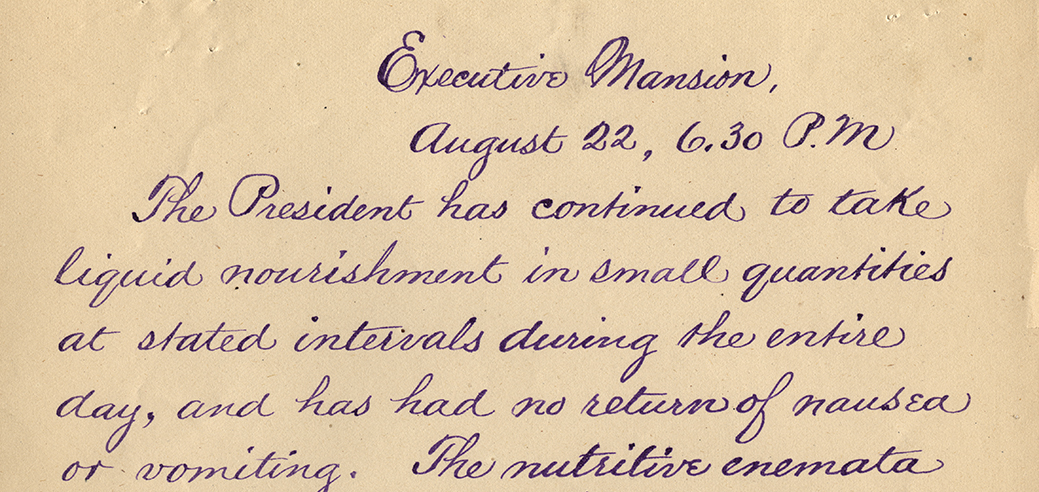 Executive Mansion,
August 22, 6.30 P.M
The President has continued to take
liquid nourishment in small quantities
at stated intervals during the entire
day, and has had no return of nausea
or vomiting. The nutritive enemata